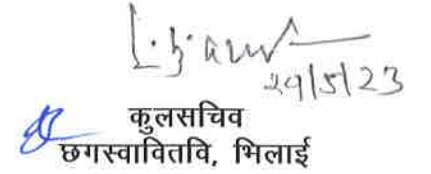 29/5/23
कुलसचिव
छगस्वावितवि, भिलाई